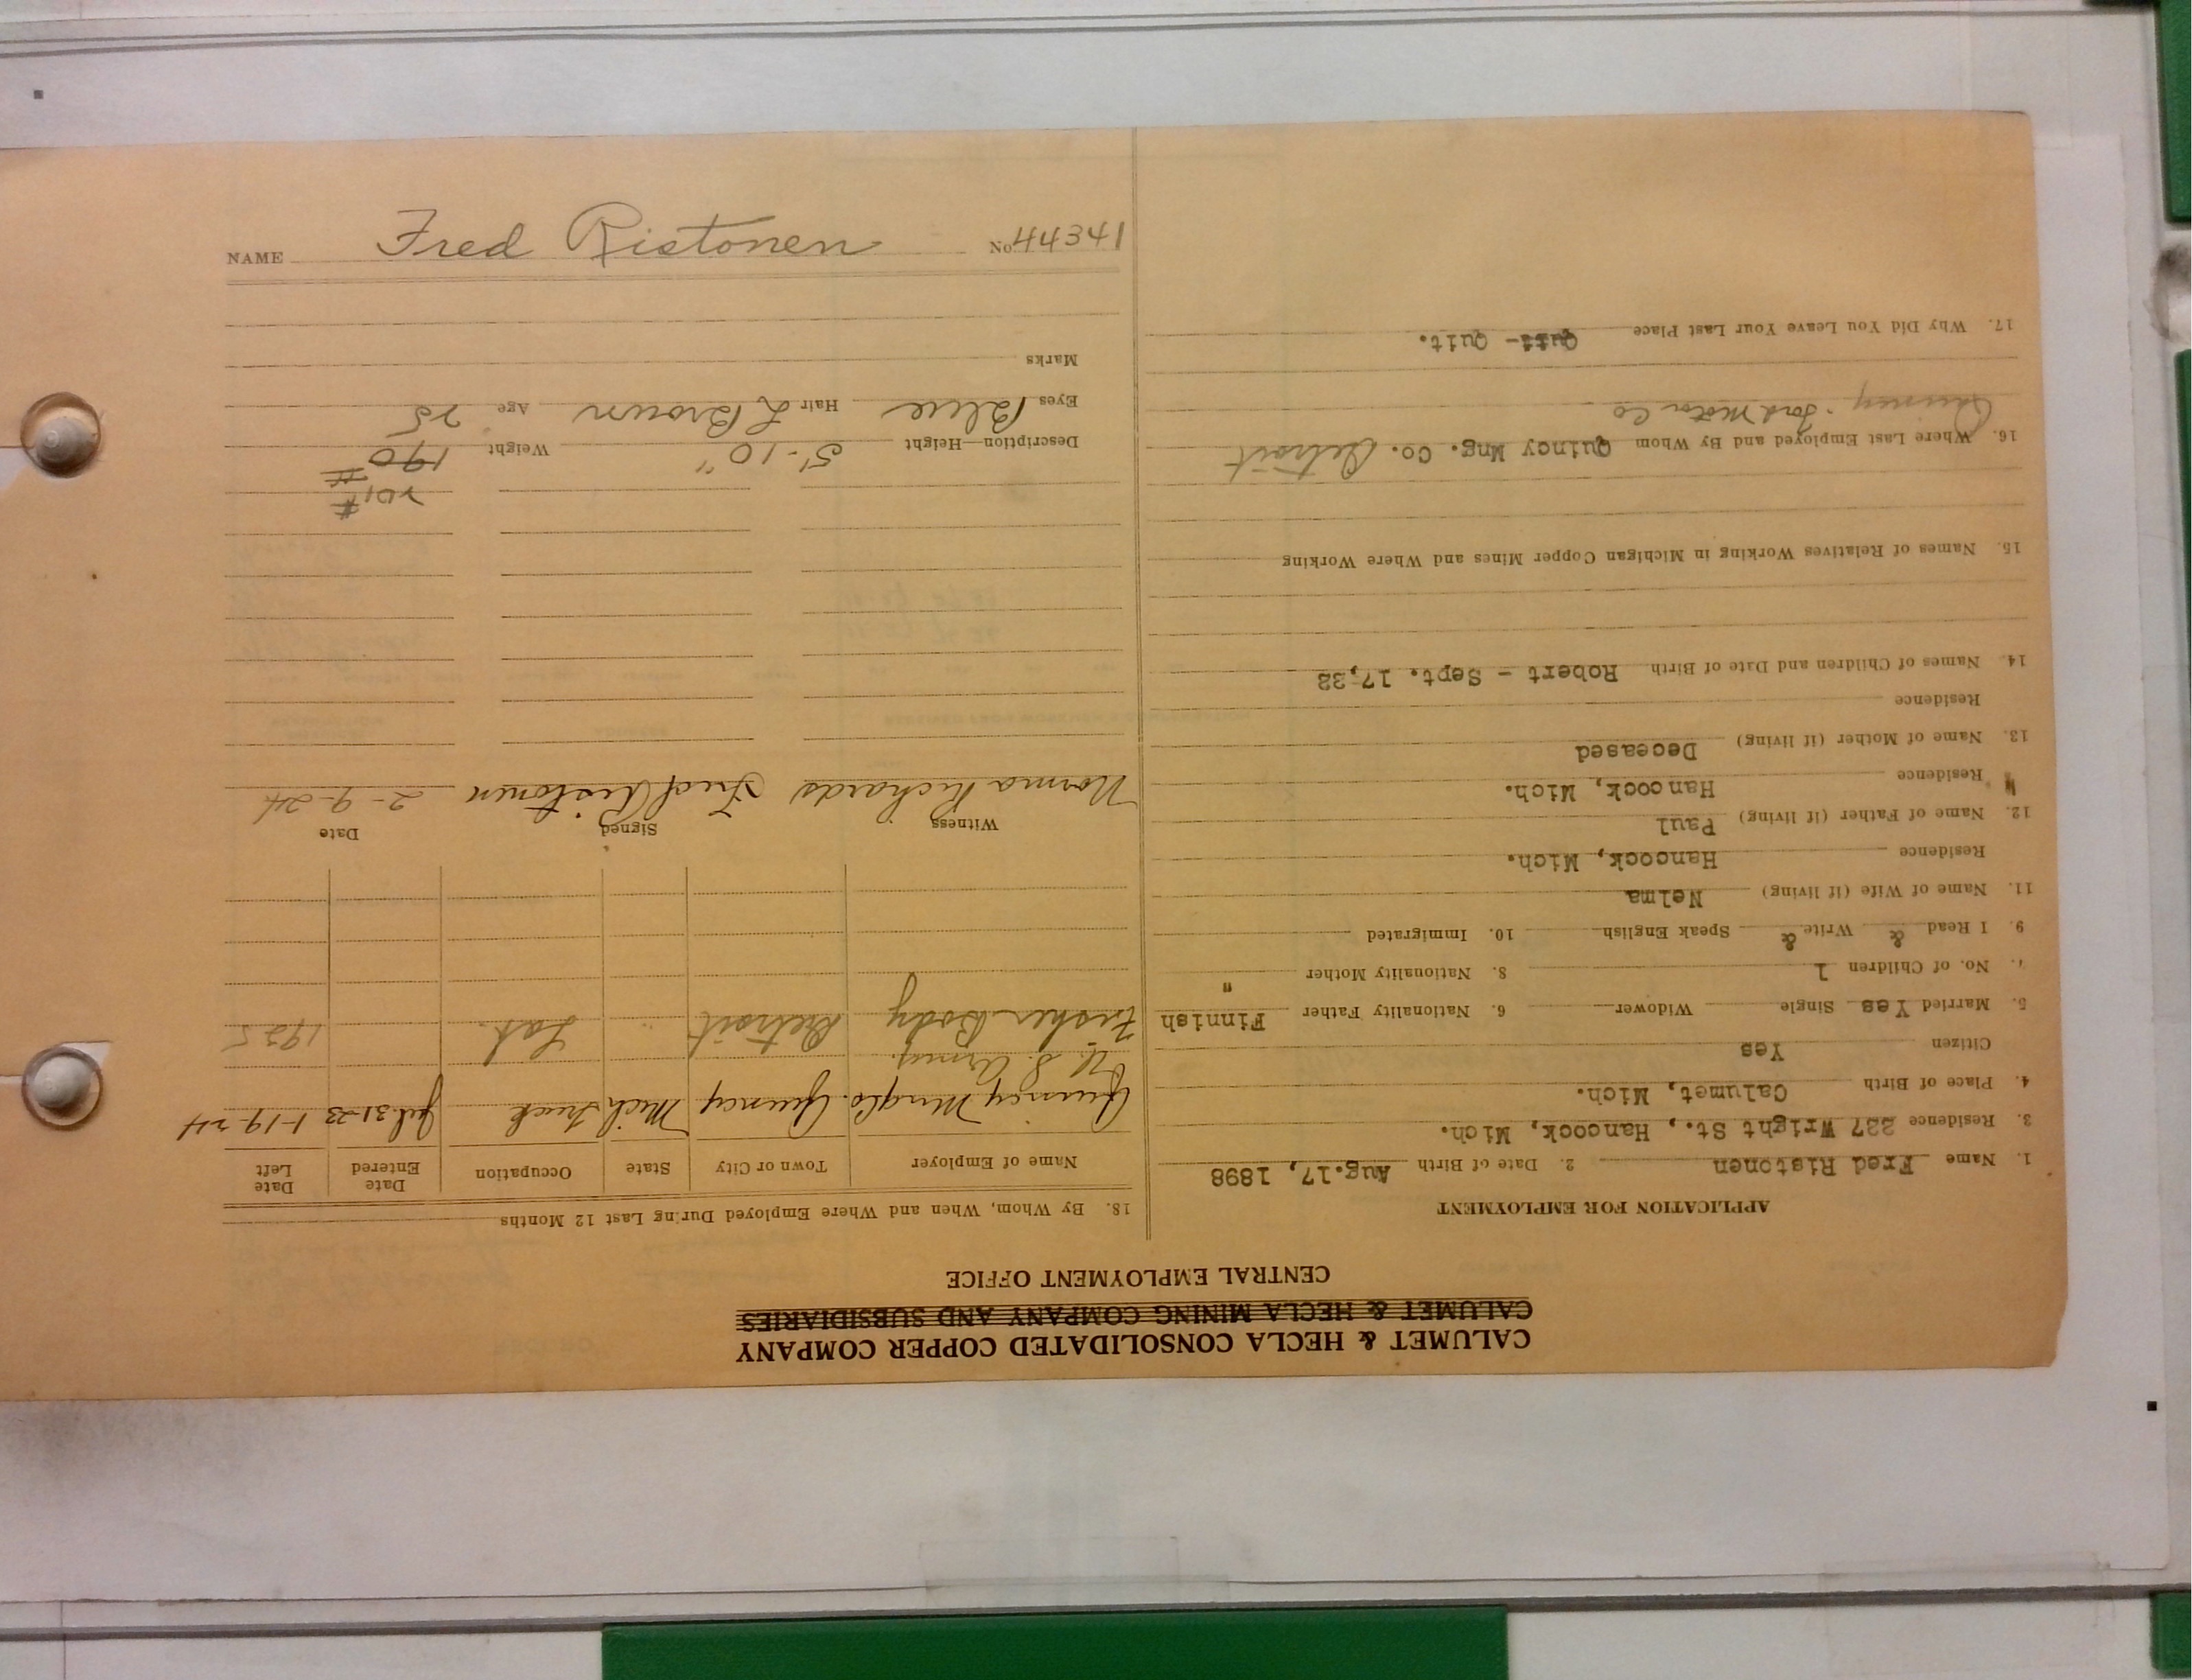 CALUMET & HECLA CONSOLIDATED COPPER COMPANY
CALUMET & HECLA MINING COMPANY AND SUBSIDIARIES
CENTRAL EMPLOYMENT OFFICE
APPLICATION FOR EMPLOYMENT
1. Name Fred Ristonen 2. Date of Birth Aug.17, 1898
3. Residence 237 Wright St., Hancock, Mich.
4. Place of Birth Calumet, Mich.
Citizen Yes
5. Married Yes Single Widower 6. Nationality Father Finnish
7. No. of Children 1 8. Nationality Mother "
9. I Read & Write & Speak English 10. Immigrated
11. Name of Wife (if living) Nelma
Residence Hancock, Mich.
12. Name of Father (if living) Paul
Residence Hancock, Mich.
13. Name of Mother (if living) Deceased
Residence
14. Names of Children and Date of Birth Robert - Sept. 17,
15. Names of Relatives Working in Michigan Copper Mines and Where Working
16. Where Last Employed and By Whom Quincy Mng. Co. Detroit
Quincy - Ford Motor Co
17. Why Did You Leave Your Last Place Quit- Quit.
18. By Whom, When and Where Employed During Last 12 Months
Name of Employer Town or City State Occupation Date Entered Date Left
Quincy Mng Co. Quincy Mich Truck Jul. 31-23 1-19-24
U. S. Army.
Fisher Body Detroit " Lab. 1925
Witness Signed Date
Norma Richards Fred Ristonen 2-9-24
201#
Description—Height 5'-10" Weight 190#
Eyes Blue Hair L Brown Age 25
Marks
NAME Fred Ristonen No 44341